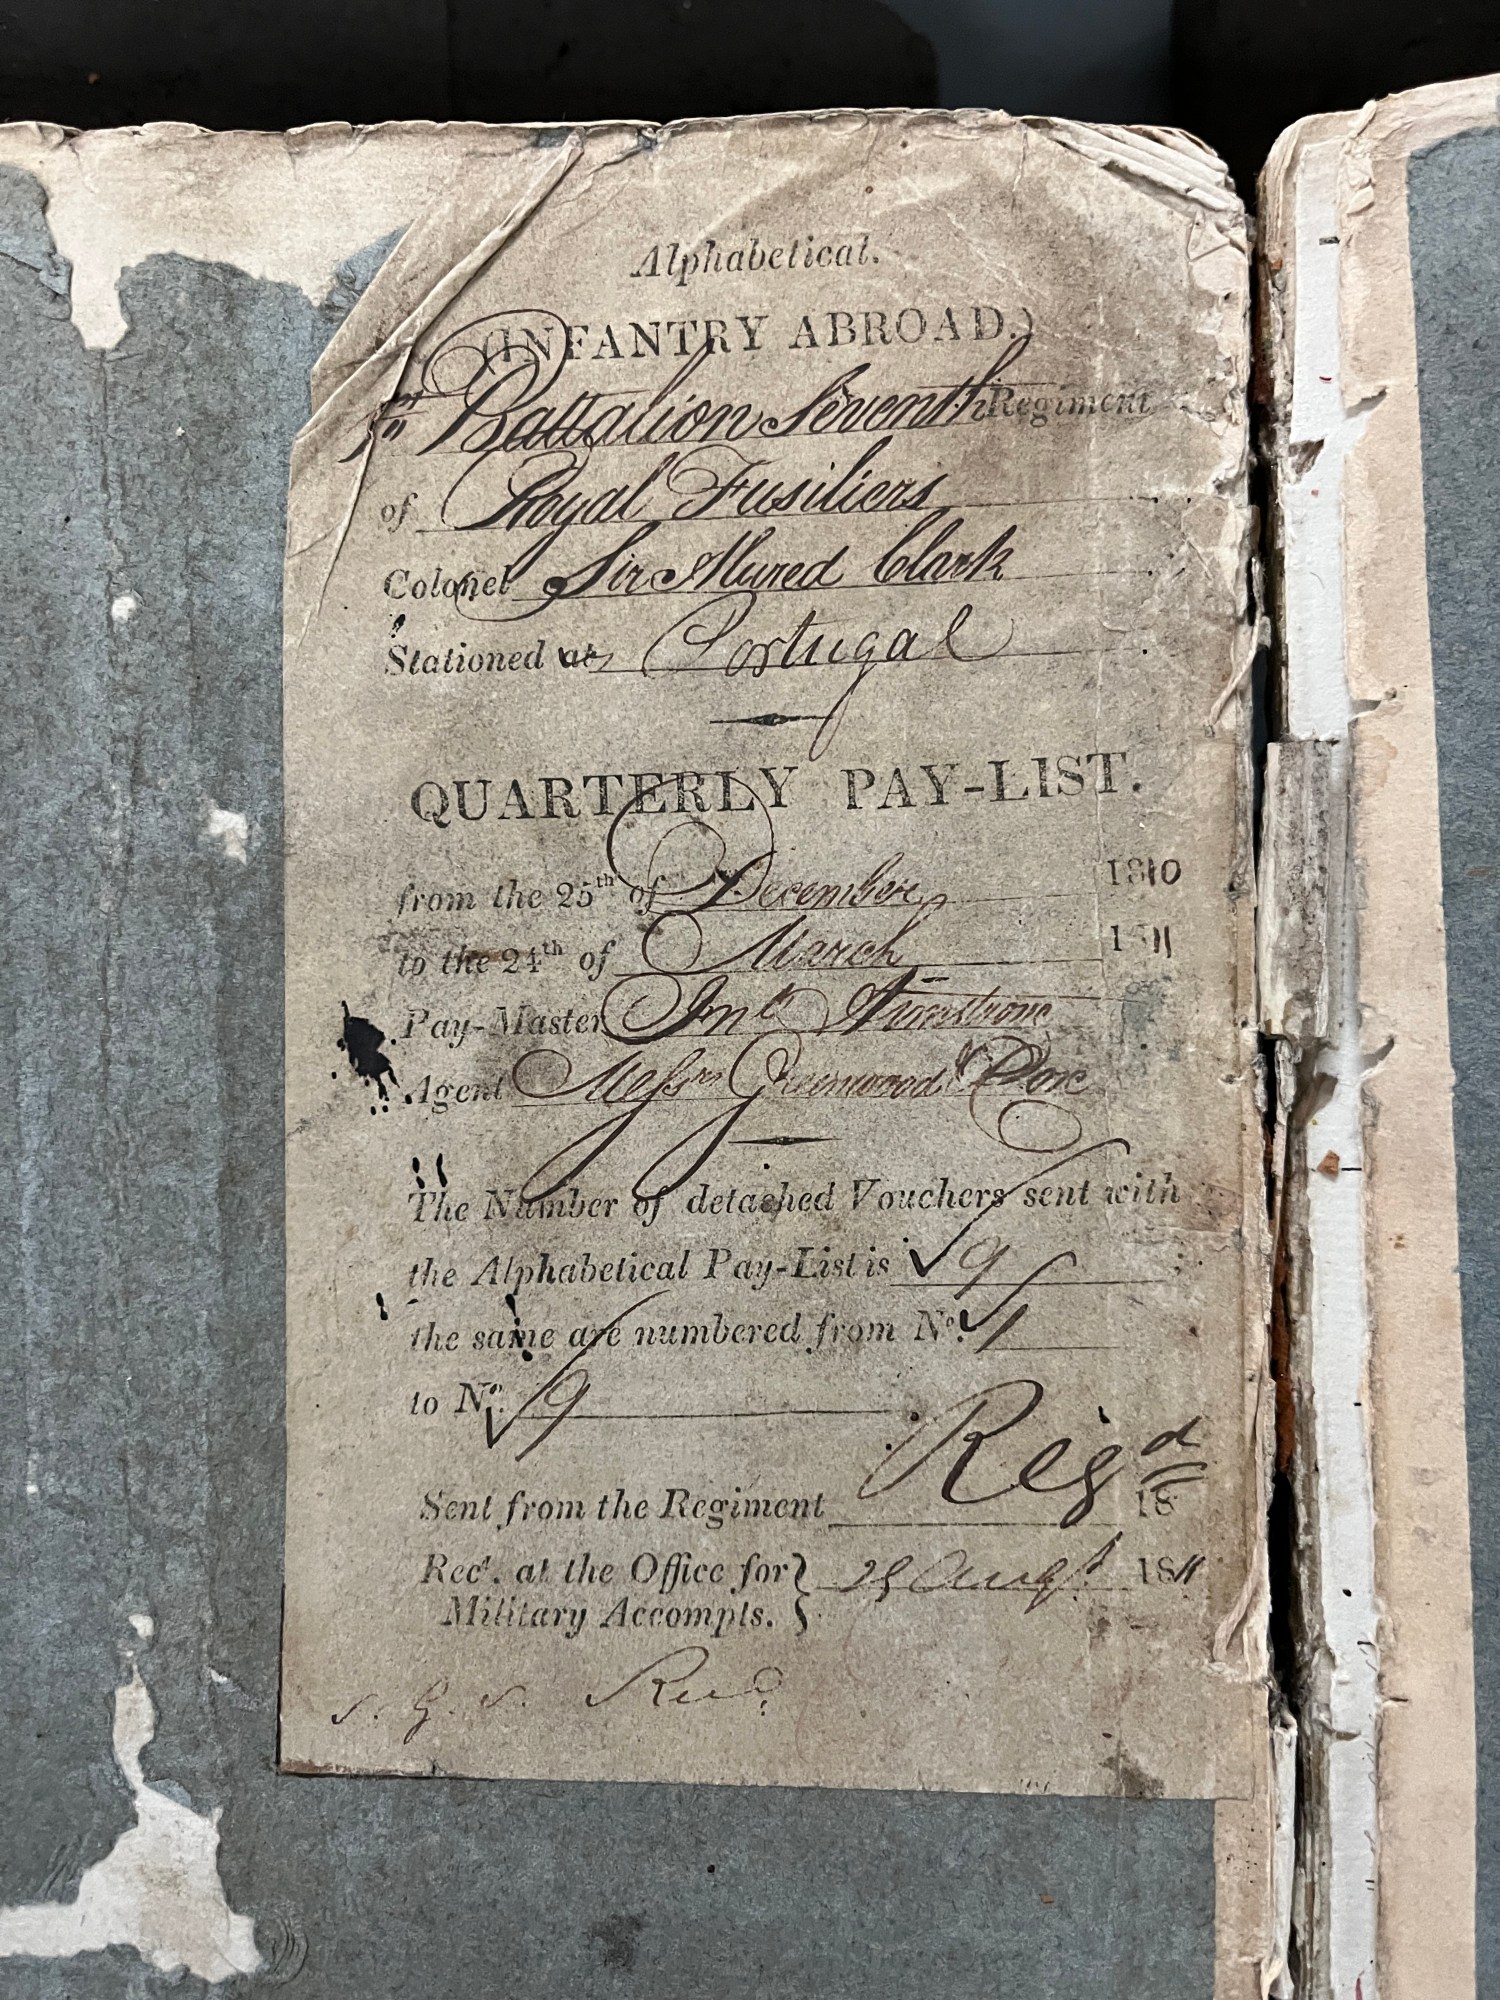 Alphabetical.
(INFANTRY ABROAD.)
1st Battalion Seventh Regiment
of Royal Fusiliers
Colonel Sir Alured Clark
Stationed at Portugal
QUARTERLY PAY-LIST.
from the 25th of December 1810
to the 24th of March 1811
Pay-Master Armstrong
Agent Messrs Greenwood & Cox
The Number of detached Vouchers sent with
the Alphabetical Pay-List is 9 ;
the same are numbered from No. 1
to No. 9
Regd
Sent from the Regiment 18
Recd. at the Office for } 29 Augt 1811
Military Accompts.